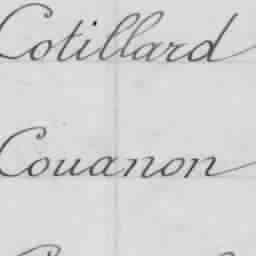 Cotillard
Couanon